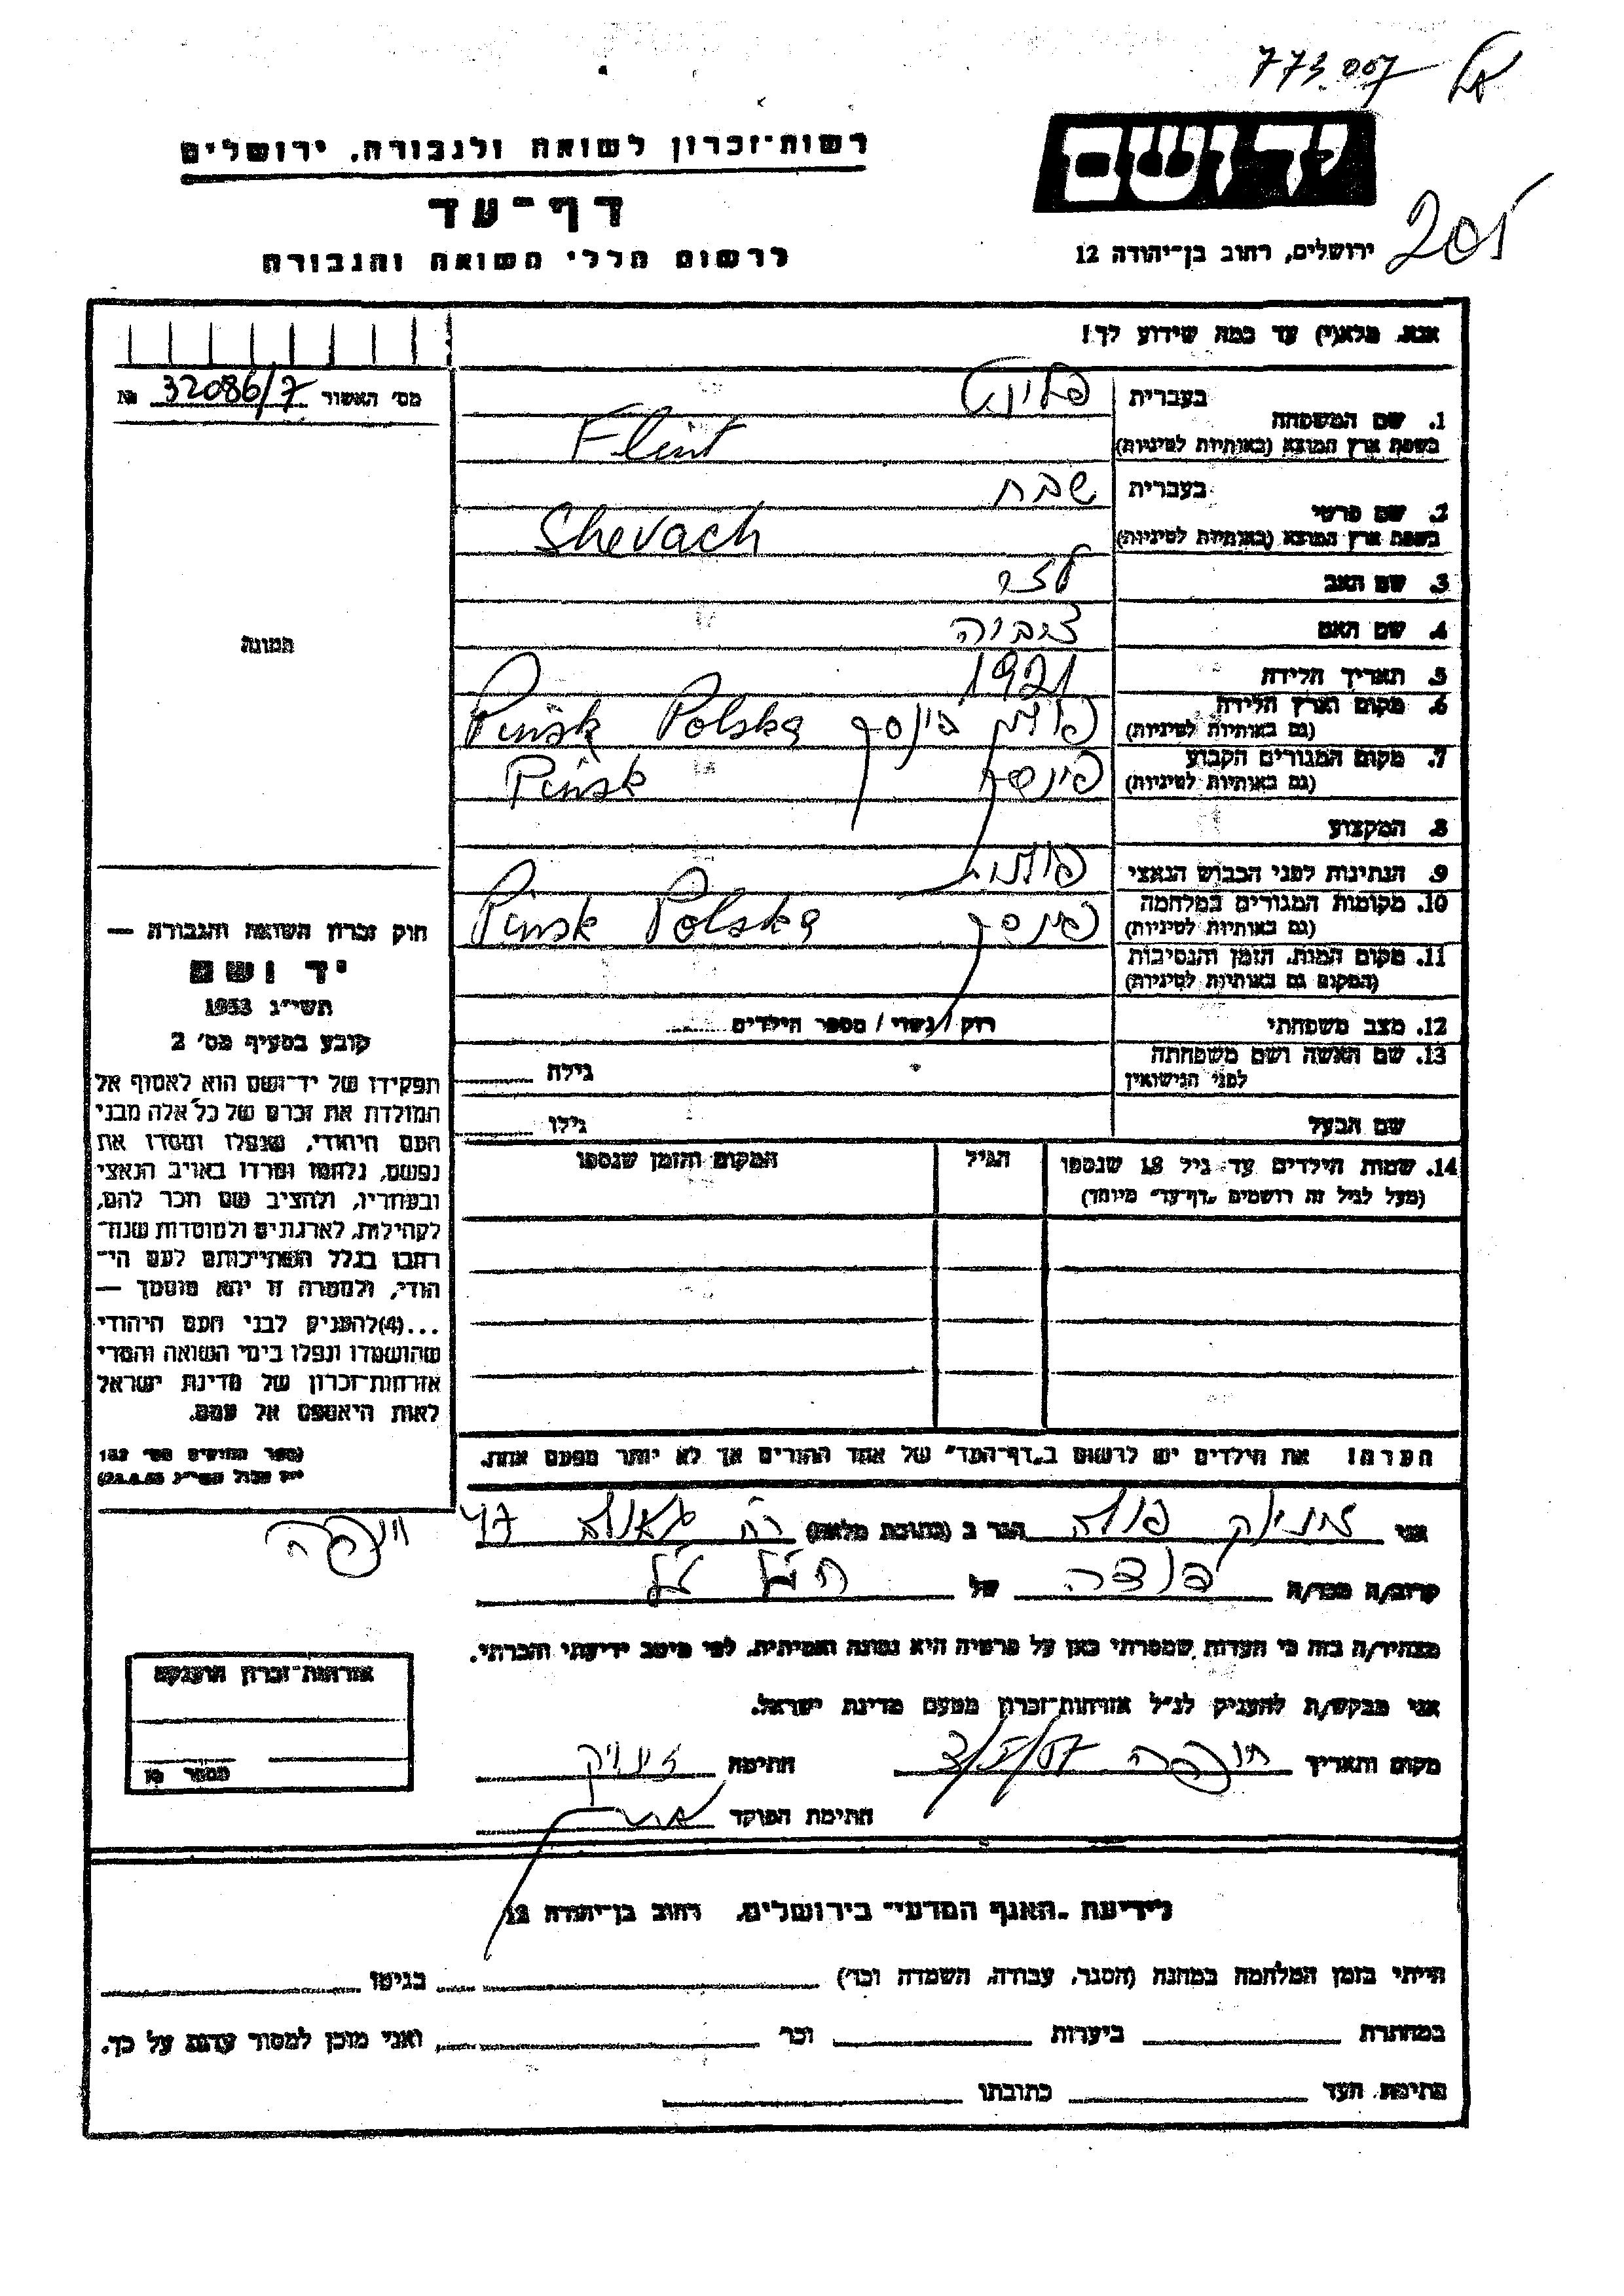 773.007
רשות־זכרון לשואה ולגבורה, ירושלים
יד ושם
דף־עד
205
לרשום חללי השואה והגבורה
ירושלים, רחוב בן־יהודה 12
אנא, מלא(י) עד כמה שידוע לך!
מס׳ האשור № 32086/7
1. שם המשפחה בעברית פלינט
בשפת ארץ המוצא (באותיות לטיניות) Flint
2. שם פרטי בעברית שבח
בשפת ארץ המוצא (באותיות לטיניות) Shevach
3. שם האב
4. שם האם
5. תאריך הלידה 1921
6. מקום וארץ הלידה (גם באותיות לטיניות) פולין פינסק Pinsk Polska
7. מקום המגורים הקבוע (גם באותיות לטיניות) פינסק Pinsk
8. המקצוע
9. הנתינות לפני הכבוש הנאצי פולנית
10. מקומות המגורים במלחמה (גם באותיות לטיניות) פינסק Pinsk Polska
11. מקום המות, הזמן והנסיבות (המקום גם באותיות לטיניות)
12. מצב משפחתי רווק / נשוי / מספר הילדים
13. שם האשה ושם משפחתה לפני הנישואין גילה
שם הבעל גילו
14. שמות הילדים עד גיל 18 שנספו הגיל המקום והזמן שנספו
(מעל לגיל זה רושמים „דף־עד” מיוחד)
הערה! את הילדים יש לרשום ב„דף־העד” של אחד ההורים אך לא יותר מפעם אחת.
תמונה
חוק זכרון השואה והגבורה —
יד ושם
תשי״ג 1953
קובע בסעיף מס׳ 2
תפקידו של יד־ושם הוא לאסוף אל
המולדת את זכרם של כל אלה מבני
העם היהודי, שנפלו ומסרו את
נפשם, נלחמו ומרדו באויב הנאצי
ובעוזריו, ולהציב שם וזכר להם,
לקהילות, לארגונים ולמוסדות שנח־
רבו בגלל השתייכותם לעם הי־
הודי, ולמטרה זו יהא מוסמך —
...(4)להעניק לבני העם היהודי
שהושמדו ונפלו בימי השואה והמרי
אזרחות־זכרון של מדינת ישראל
לאות היאספם אל עמם.
(ספר החוקים מס׳ 132
אני הגר ב (כתובת מלאה) רח׳ גאולה 47
חיפה
קרוב/ה מכר/ה של
מצהיר/ה בזה כי העדות שמסרתי כאן על פרטיה היא נכונה ואמיתית, לפי מיטב ידיעתי והכרתי.
אני מבקש/ת להעניק לנ״ל אזרחות־זכרון מטעם מדינת ישראל.
מקום ותאריך חיפה חתימה
חתימת הפוקד
אזרחות־זכרון הוענקה
מספר
לידיעת „האגף המדעי” בירושלים, רחוב בן־יהודה 12
הייתי בזמן המלחמה במחנה (הסגר, עבודה, השמדה וכו׳) בגיטו
במחתרת ביערות וכו׳ ואני מוכן למסור עדות על כך.
חתימת העד כתובתו